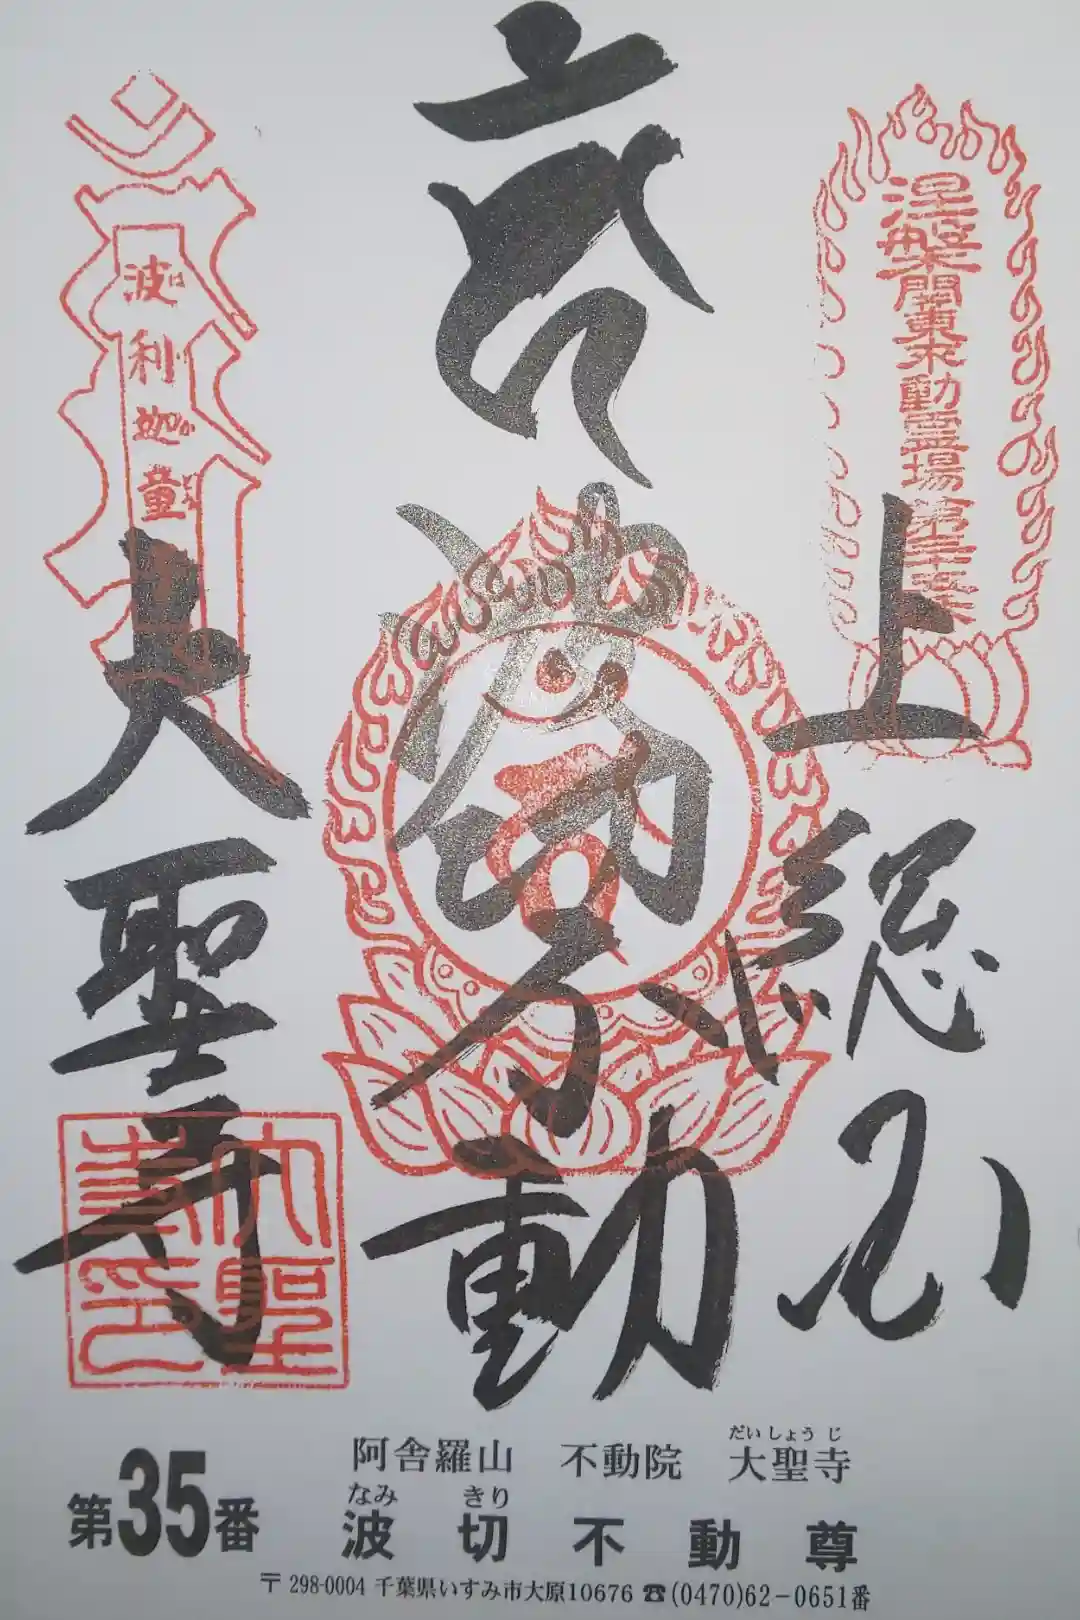 涅槃
関東不動霊場第三十五
上総国
波切不動
波利迦童
大聖寺
大聖
寺印
第35番
阿舎羅山 不動院 大聖寺
だいしょうじ
なみ きり
波切不動尊
〒298-0004 千葉県いすみ市大原10676 ☎(0470)62-0651番